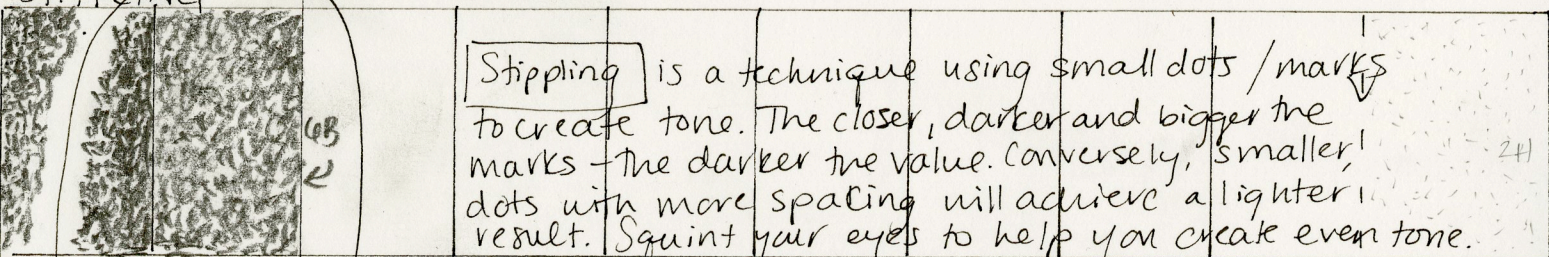 Stippling is a technique using small dots / marks
to create tone. The closer, darker and bigger the
marks - the darker the value. Conversely, smaller
dots with more spacing will achieve a lighter
result. Squint your eyes to help you create even tone.
6B
2H